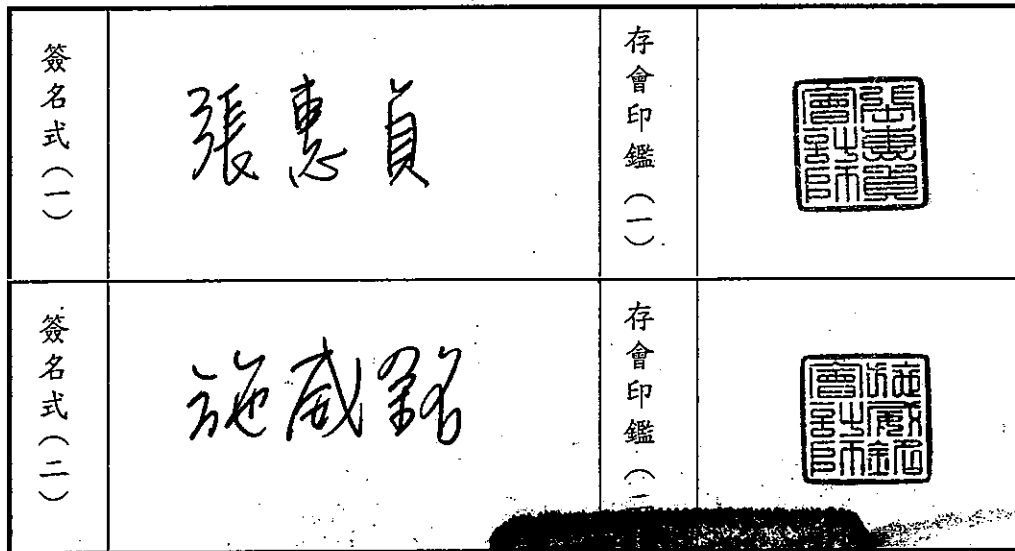 簽名式(一)
張惠貞
存會印鑑(一)
張惠貞會計師
簽名式(二)
施威銘
存會印鑑(二
施威銘會計師